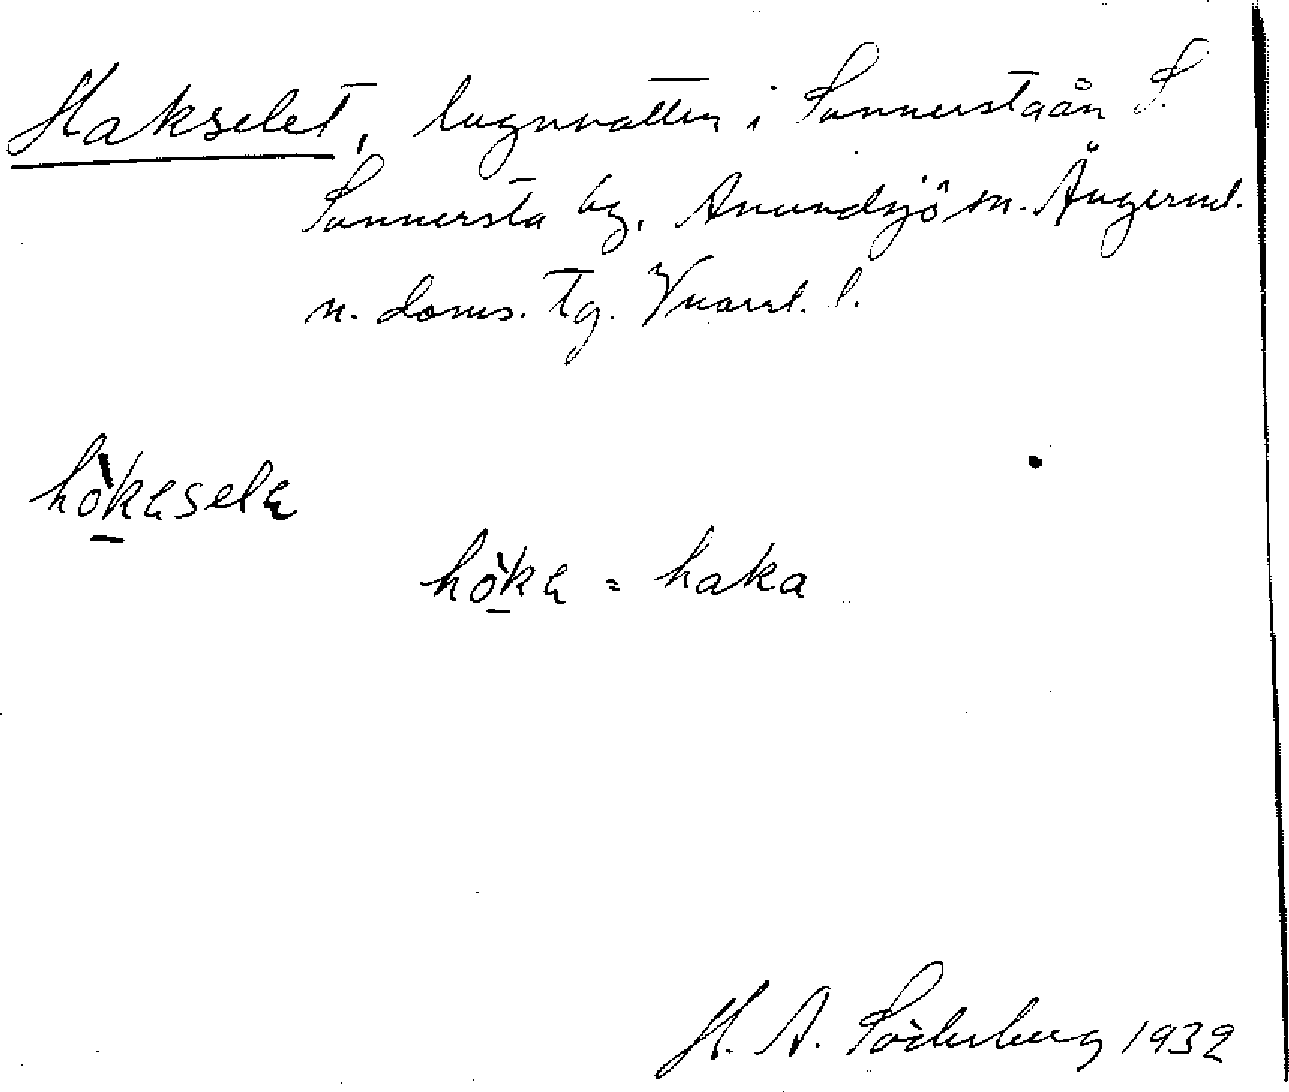 Hakselet, lugnvatten i Sunnerstaån S.
Sunnersta by, Anundsjö sn. Ångerml.
n. doms. tg. Vnorrl. l.
hòkɐselɐ
hòkɐ = haka
H. A. Söderberg 1932